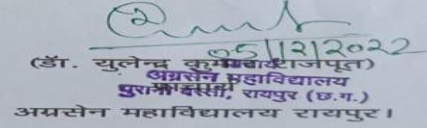 05/12/2022
(डॉ. युलेन्द्र कुमार राजपूत)
अग्रसेन महाविद्यालय
पुरानी बस्ती, रायपुर (छ.ग.)
अग्रसेन महाविद्यालय रायपुर।